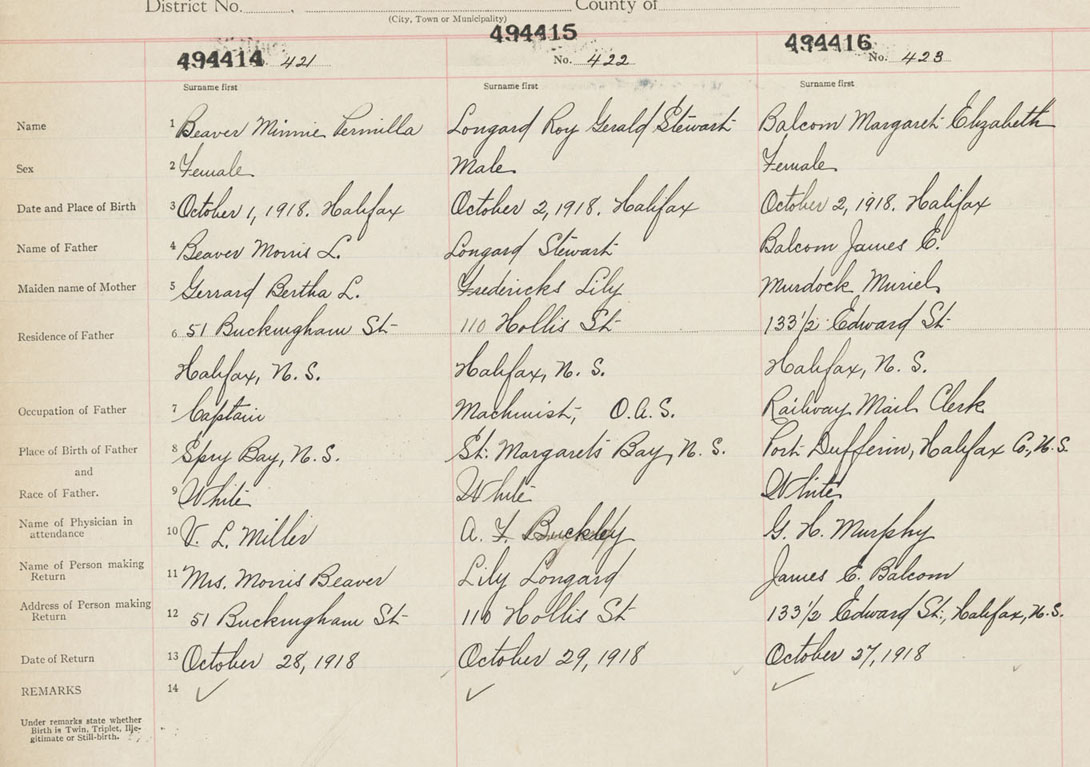 District No. County of
(City, Town or Municipality)
494414 421 494415 No. 422 494416 No. 423
Surname first Surname first Surname first
Name 1 Beaver Minnie Pernilla Longard Roy Gerald Stewart Balcom Margaret Elizabeth
Sex 2 Female Male Female
Date and Place of Birth 3 October 1, 1918. Halifax October 2, 1918. Halifax October 2, 1918. Halifax
Name of Father 4 Beaver Morris L. Longard Stewart Balcom James E.
Maiden name of Mother 5 Gerrard Bertha L. Fredericks Lily Murdock Muriel
Residence of Father 6 51 Buckingham St 110 Hollis St 133 1/2 Edward St
Halifax, N. S. Halifax, N. S. Halifax, N. S.
Occupation of Father 7 Captain Machinist, O.A.S. Railway Mail Clerk
Place of Birth of Father 8 Spry Bay, N.S. St. Margarets Bay, N. S. Port Dufferin, Halifax Co., N.S.
and
Race of Father. 9 White White White
Name of Physician in attendance 10 V. L. Miller A. F. Buckley G. H. Murphy
Name of Person making Return 11 Mrs. Morris Beaver Lily Longard James E. Balcom
Address of Person making Return 12 51 Buckingham St 110 Hollis St 133 1/2 Edward St., Halifax, N.S.
Date of Return 13 October 28, 1918 October 29, 1918 October 27, 1918
REMARKS 14 ✓ ✓ ✓
Under remarks state whether
Birth is Twin, Triplet, Ille-
gitimate or Still-birth.